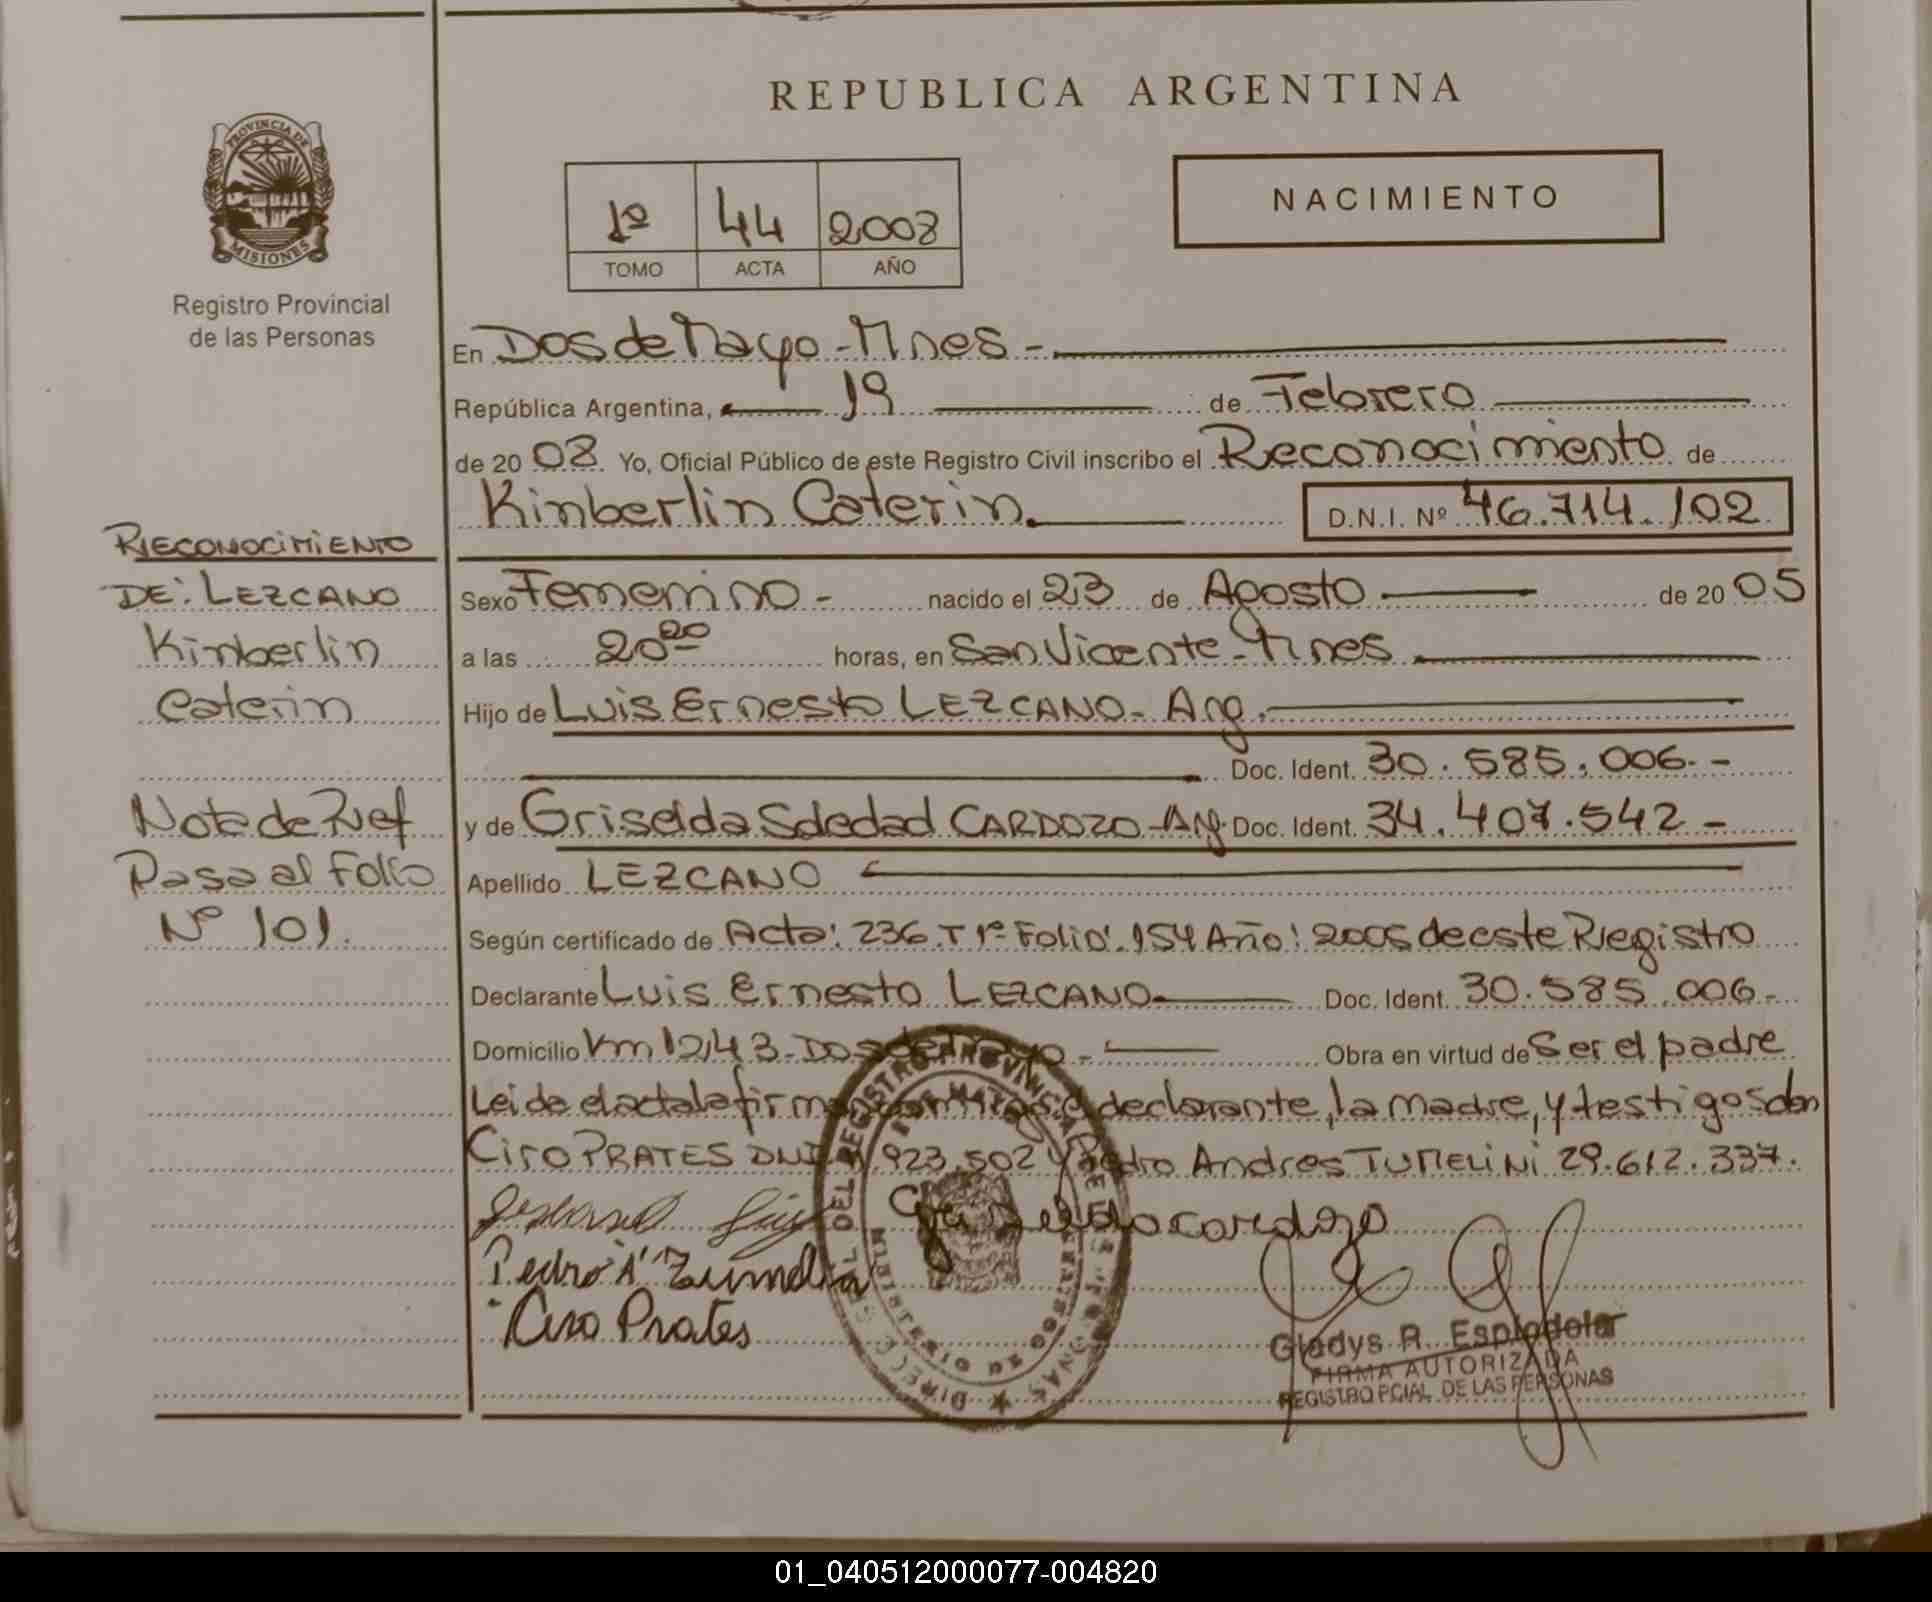 REPUBLICA ARGENTINA
PROVINCIA DE
MISIONES
Registro Provincial
de las Personas
1º 44 2008
TOMO ACTA AÑO
NACIMIENTO
En Dos de Mayo - Mnes -
República Argentina, 19 de Febrero
de 20 08 Yo, Oficial Público de este Registro Civil inscribo el Reconocimiento de
Kinberlin Caterin. D.N.I. Nº 46.714.102
RECONOCIMIENTO
DE: LEZCANO
Kinberlin
Caterin
Nota de Ref
Pasa al Folio
Nº 101.
Sexo Femenino - nacido el 23 de Agosto de 20 05
a las 20 20 horas, en San Vicente - Mnes
Hijo de Luis Ernesto LEZCANO - Arg.
Doc. Ident. 30.585.006.-
y de Griselda Soledad CARDOZO - Arg. Doc. Ident. 34.407.542 -
Apellido LEZCANO
Según certificado de Acta: 236 T 1º Folio: 154 Año: 2005 de este Registro
Declarante Luis Ernesto LEZCANO Doc. Ident. 30.585.006 -
Domicilio Km 1243 - Dos de Mayo - Obra en virtud de Ser el padre
Leida el acta la firman conmigo el declarante, la madre, y testigos don
Ciro PRATES DNI 923.502 y Pedro Andres 29.612.337.
Griselda cardozo
Pedro A
Ciro Prates
Gladys R.
FIRMA AUTORIZADA
REGISTRO PCIAL. DE LAS PERSONAS
01_040512000077-004820